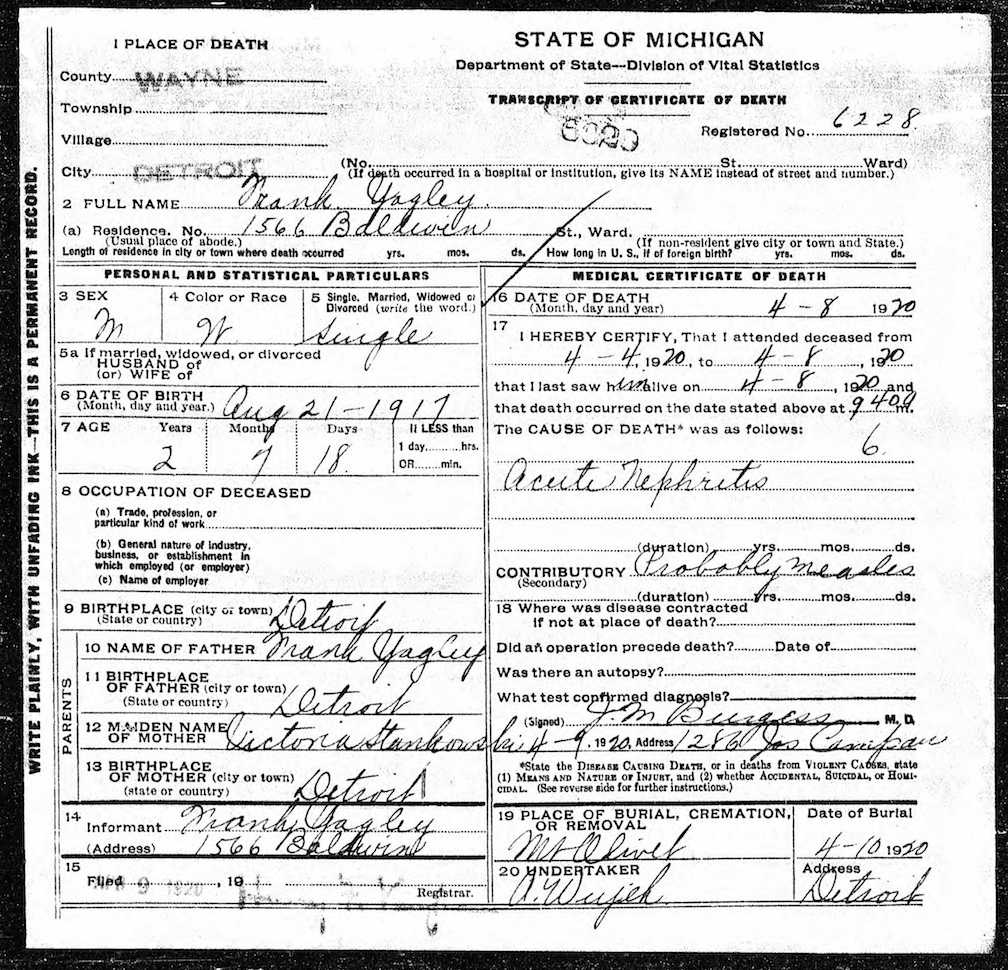 WRITE PLAINLY, WITH UNFADING INK—THIS IS A PERMANENT RECORD.
1 PLACE OF DEATH
County WAYNE
Township
Village
City DETROIT
STATE OF MICHIGAN
Department of State—Division of Vital Statistics
TRANSCRIPT OF CERTIFICATE OF DEATH
Registered No. 6228
(No. St. Ward)
(If death occurred in a hospital or institution, give its NAME instead of street and number.)
2 FULL NAME Frank Yagley
(a) Residence. No. 1566 Baldwin St., Ward.
(Usual place of abode.) (If non-resident give city or town and State.)
Length of residence in city or town where death occurred yrs. mos. ds. How long in U. S., if of foreign birth? yrs. mos. ds.
PERSONAL AND STATISTICAL PARTICULARS
3 SEX M
4 Color or Race W
5 Single, Married, Widowed or Divorced (write the word.) Single
5a If married, widowed, or divorced
HUSBAND of
(or) WIFE of
6 DATE OF BIRTH
(Month, day and year.) Aug 21-1917
7 AGE Years Months Days If LESS than
1 day hrs.
OR min.
2 7 18
8 OCCUPATION OF DECEASED
(a) Trade, profession, or
particular kind of work
(b) General nature of industry,
business, or establishment in
which employed (or employer)
(c) Name of employer
9 BIRTHPLACE (city or town)
(State or country) Detroit
PARENTS
10 NAME OF FATHER Frank Yagley
11 BIRTHPLACE
OF FATHER (city or town)
(State or country) Detroit
12 MAIDEN NAME
OF MOTHER Victoria Stankowski
13 BIRTHPLACE
OF MOTHER (city or town)
(state or country) Detroit
14
Informant Frank Yagley
(Address) 1566 Baldwin
15
Filed 9 1920, 19
Registrar.
MEDICAL CERTIFICATE OF DEATH
16 DATE OF DEATH
(Month, day and year) 4-8 1920
17
I HEREBY CERTIFY, That I attended deceased from
4-4, 1920, to 4-8, 1920
that I last saw him alive on 4-8, 1920 and
that death occurred on the date stated above at 940a m.
The CAUSE OF DEATH* was as follows:
6
Acute Nephritis
(duration) yrs. mos. ds.
CONTRIBUTORY Probably measles
(Secondary)
(duration) yrs. mos. ds.
18 Where was disease contracted
if not at place of death?
Did an operation precede death? Date of
Was there an autopsy?
What test confirmed diagnosis?
(Signed) J. M Burgess M. D.
4-9, 1920, Address 1286 Jos Campau
*State the DISEASE CAUSING DEATH, or in deaths from VIOLENT CAUSES, state
(1) MEANS AND NATURE OF INJURY, and (2) whether ACCIDENTAL, SUICIDAL, OR HOMI-
CIDAL. (See reverse side for further instructions.)
19 PLACE OF BURIAL, CREMATION,
OR REMOVAL
Mt Olivet
Date of Burial
4-10 1920
20 UNDERTAKER
Address
Detroit